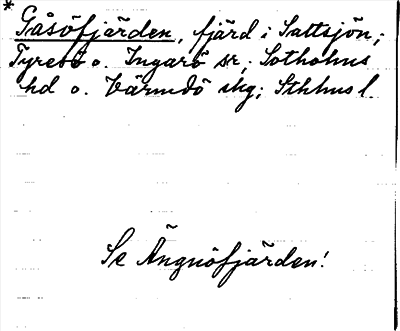 * Gåsöfjärden, fjärd i Saltsjön;
Tyresö o. Ingarö sr, Sotholms
hd o. Värmdö skg; Sthlms l.
Se Ängnöfjärden!